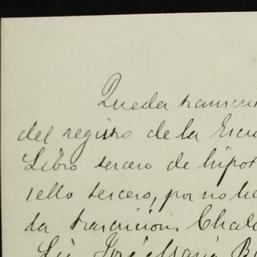 Queda transcri
del registro de la Escri
Libro tercero de hipot
sello tercero, por no ha
la trascricion. Chalc
Lic. José Maria B